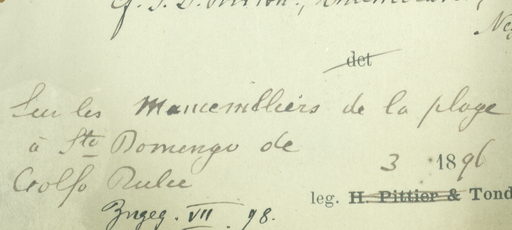 det
Sur les Mancenilliers de la plage
à Ste Domengo de
Golfo Dulce
3 1896
leg. H. Pittier & Tond
VII 98.